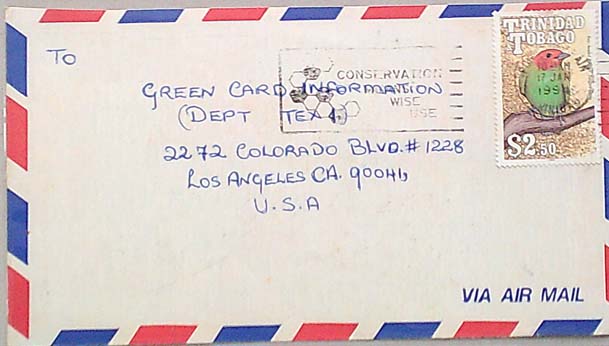 To
TRINIDAD
TOBAGO
17 JAN
$2.50
CONSERVATION
WISE
USE
GREEN CARD INFORMATION
(DEPT TEX 1)
2272 COLORADO BLVD. # 1228
LOS ANGELES CA. 90041,
U.S.A
VIA AIR MAIL